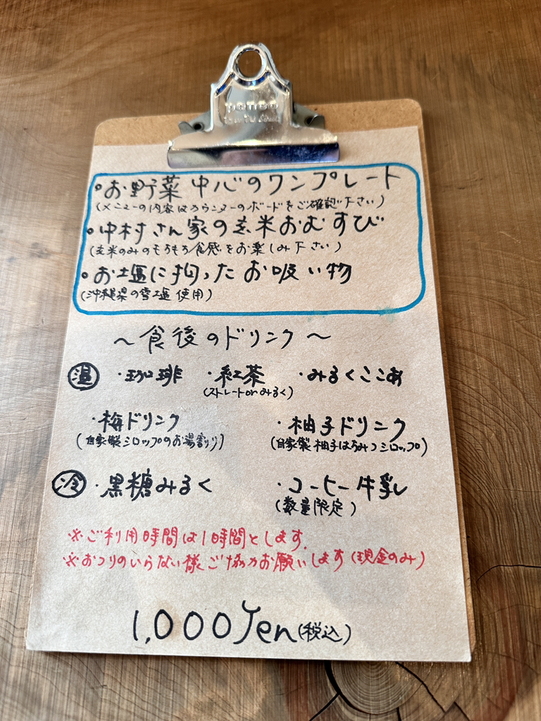 ・お野菜中心のワンプレート
(メニューの内容はカウンターのボードをご確認下さい)
・中村さん家の玄米おむすび
(玄米のみのもちもち食感をお楽しみ下さい)
・お塩に拘ったお吸い物
(沖縄県の雪塩使用)
～食後のドリンク～
温 ・珈琲 ・紅茶 ・みるくここあ
(ストレートorみるく)
・梅ドリンク ・柚子ドリンク
(自家製シロップのお湯割り) (自家製柚子はちみつシロップ)
冷 ・黒糖みるく ・コーヒー牛乳
(数量限定)
※ご利用時間は1時間とします.
※おつりのいらない様ご協力お願いします(現金のみ)
1,000Yen(税込)